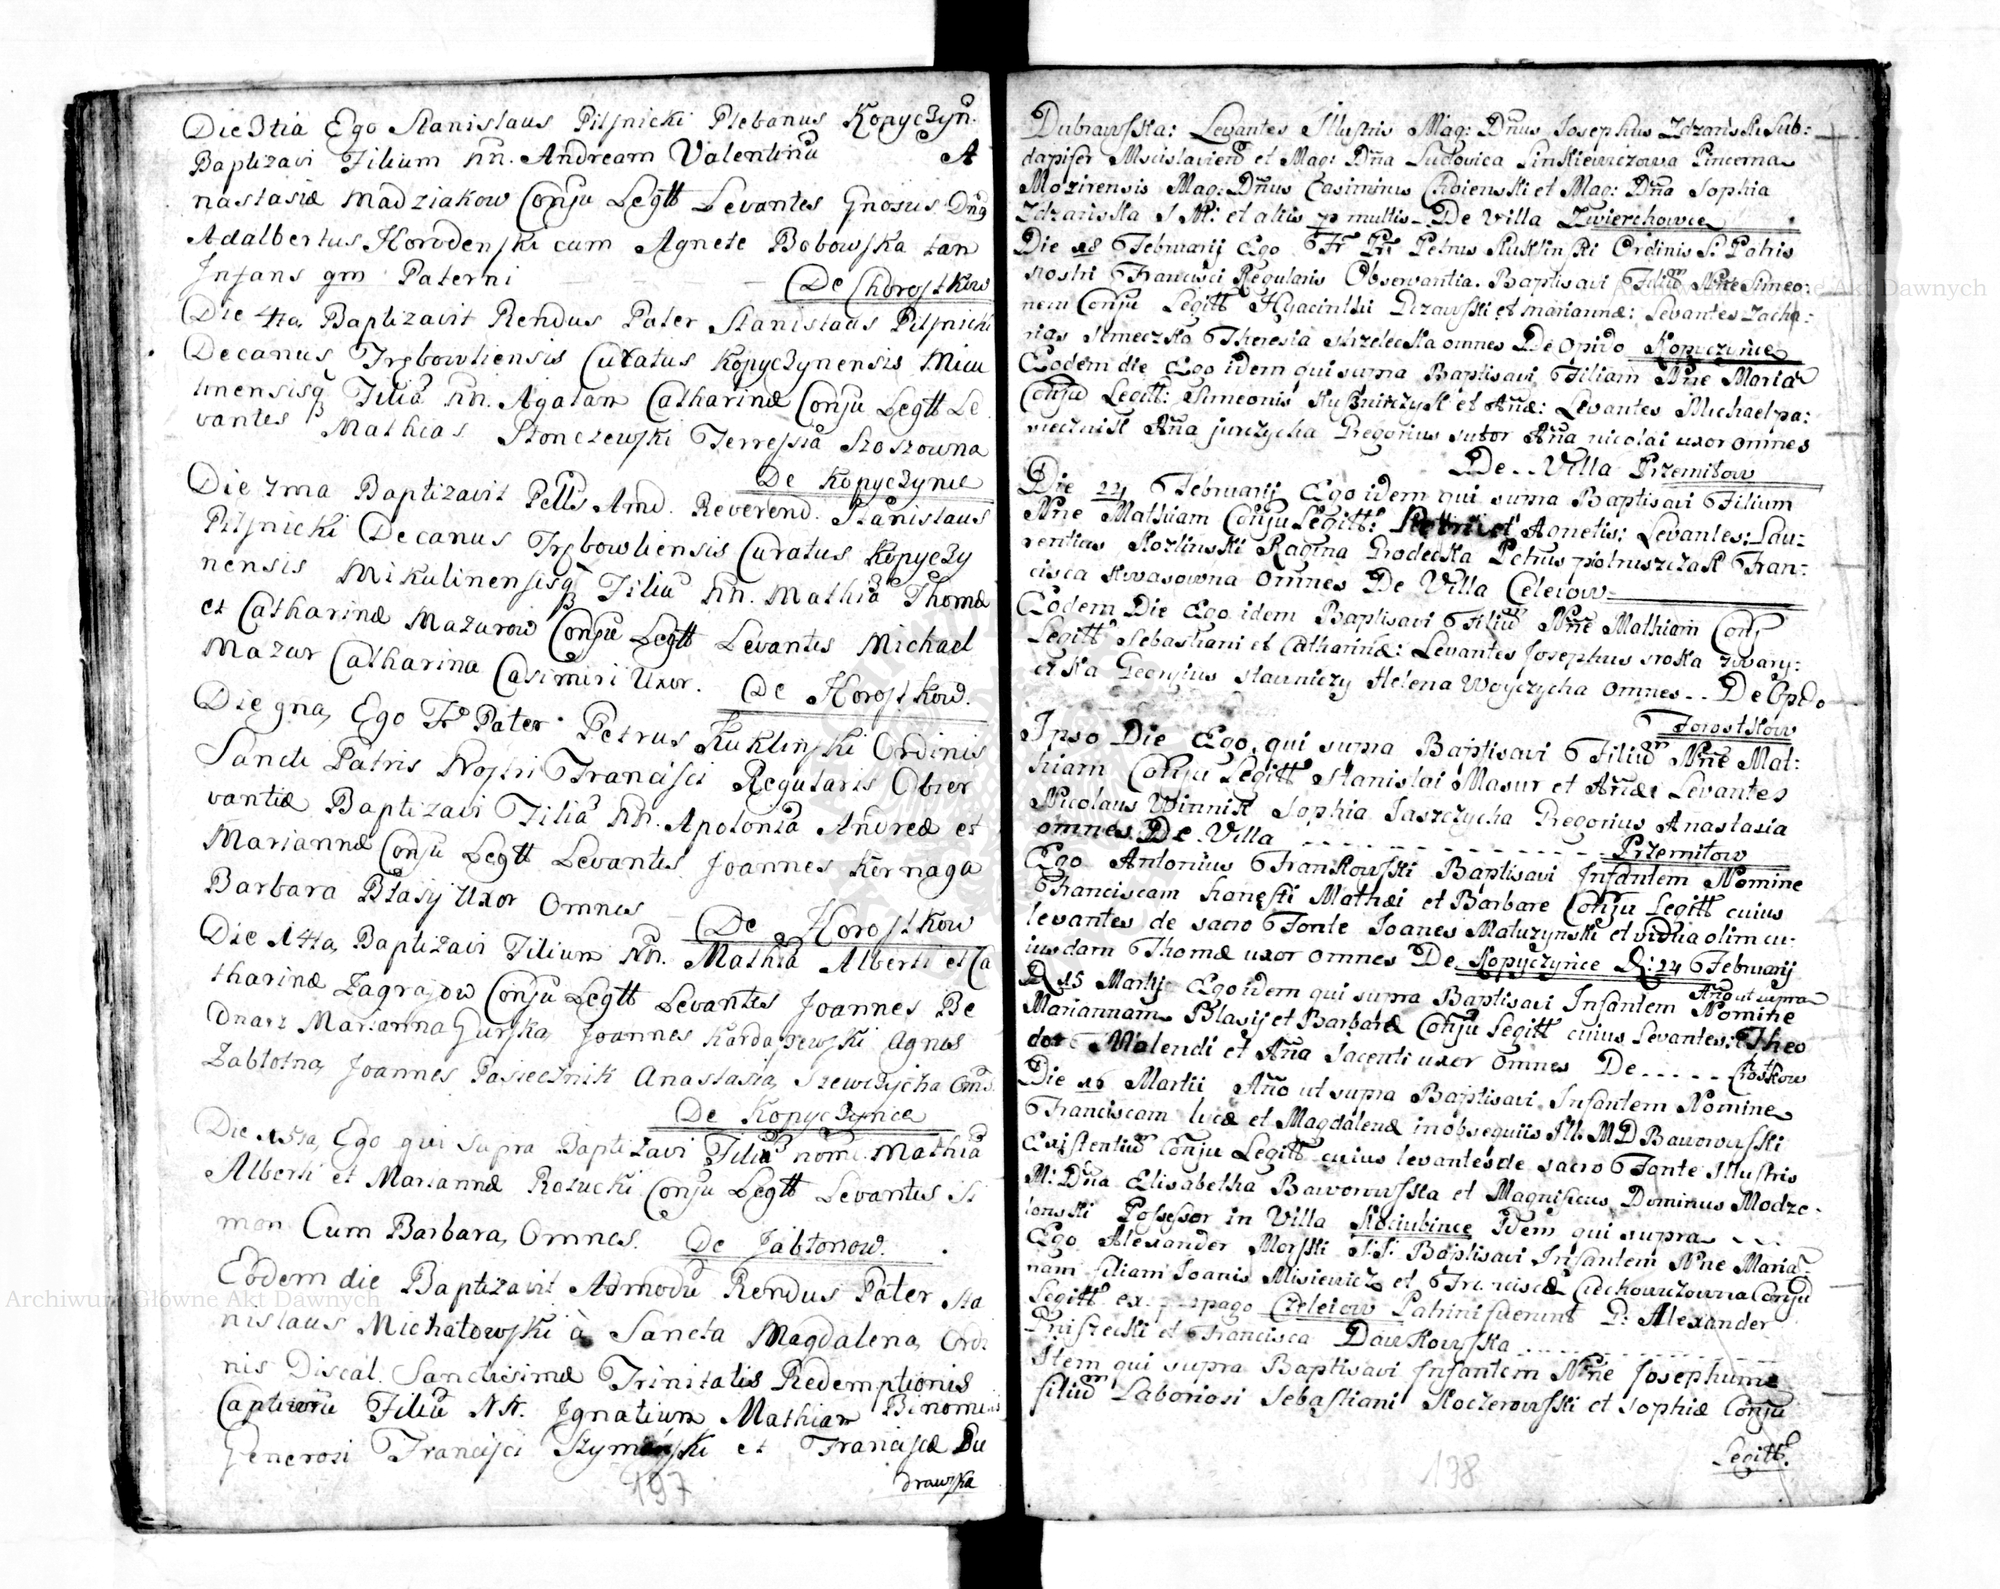 Die 3tia Ego Stanislaus Pilſnicki Plebanus Kopyczyn.
Baptizavi Filium nn. Andream Valentinû A
nastasiæ Madziakow Conju Legtt Levantes Gnosus Dnus
Adalbertus Horodenſki cum Agnete Bobowſka tan
Infans gm Paterni De Choroſtkow
Die 4ta, Baptizavit Rendus Pater Stanislaus Pilſnicki
Decanus Trębowliensis Curatus Kopyczynensis Miku
linensisq Filiâ nn. Agatam Catharinæ Conju Legtt Le
vantes Mathias Słonczewſki Terreſsia Szoszowna
De Kopyczynie
Die 7ma Baptizavit Pells Amd. Reverend. Stanislaus
Pilſnicki Decanus Trębowliensis Curatus Kopyczy
nensis Mikulinensisq Filiû nn. Mathiâ Thomæ
et Catharinæ Mazurow Conju Legtt Levantes Michael
Mazur Catharina Casimiri Uxor. De Horoſtkow.
Die 9na, Ego Fr Pater Petrus Kuklinſki Ordinis
Sancti Patris Noſtri Franciſci Regularis Obser
vantiæ Baptizavi Filiâ nn. Apoloniâ Andreæ et
Mariannæ Conju Legtt Levantes Joannes Kernaga
Barbara Błasij Uxor Omnes De Horoſtkow
Die 14ta, Baptizavi Filium nn. Mathiâ Alberti et Ca
tharinæ Zagrajow Conju Legtt Levantes Joannes Be
dnarz Marianna Gurſka, Joannes Kardaſzewſki Agnes
Zabłotna, Joannes Pasiecznik Anastasia, Szewczycha Oms
De Kopyczynce
Die 15ta, Ego qui supra Baptizavi Filiû nom. Mathiâ
Alberti et Mariannæ Rozucki Conju Legtt Levantes Si
mon Cum Barbara, Omnes. De Jabłonow.
Eodem die Baptizavit Admodû Rendus Pater Sta
nislaus Michałowſki à Sancta Magdalena, Ordi
nis Discal. Sanctissimæ Trinitatis Redemptionis
Captivorû Filiû NN. Ignatium Mathiam Binomi
Generosi Franciſci Szymanſki et Franciſcæ Du
brawſka
197
Dubrawſska: Levantes Illustris Mag: Dñus Josephus Zdzanski Sub=
dapifer Mscislavien et Mag: Dña Ludovica Sinkiewiczowa Pincerna
Mozirensis Mag: Dñus Casimirus Choienſki et Mag: Dña Sophia
Zdzańska et aliis multis De Villa Zwierchowce
Die 18 Februarij Ego Fr Pr Petrus Kuklinſki Ordinis S: Patris
nostri Francisci Regularis Observantia. Baptisavi Filiû Nñe Simeo=
nem Conju Legitt Hyacinthi Przawſki et Mariannæ: Levantes Zacha=
rias Theresia Strzelecka omnes De Opido Kopyczynce
Eodem die Ego idem qui supra Baptisavi Filiam Nñe Mariâ
Conju Legitt: Simeonis et Añæ: Levantes Michael pa=
siecznik Aña jurczycha Gregorius sutor Aña nicolai uxor omnes
De Villa Przemiłow
Die 24 Februarij Ego idem qui supra Baptisavi Filium
Nñe Mathiam Conju Legitt: Petri et Agnetis: Levantes: Lau=
rentius Kozlinski Ragina Grodecka Petrus Fran=
cisca Kwasowna omnes De Villa Celeiow
Eodem Die Ego idem Baptisavi Filiû Nñe Mathiam Conj
Legitt Sebastiani et Catharinæ: Levantes Josephus sroka
Georgius Helena Woyczycha omnes De Opido
Forostkow
Ipso Die Ego qui supra Baptisavi Filiû Nñe Mat=
hiam Conju Legitt Stanislai Masur et Añæ Levantes
Nicolaus Winnik Sophia Jaszczycha Gregorius Anastasia
omnes De Villa Przemiłow
Ego Antonius Frankowſki Baptisavi Infantem Nomine
Franciscam Mathæi et Barbare Conju Legitt cuius
levantes de sacro Fonte Joanes Matuzynski et vidua olim cu=
iusdam Thomæ uxor omnes De Kopyczynce D: 24 Februarij
Año ut supra
D 15 Martij Ego idem qui supra Baptisavi Infantem Nomine
Mariannam Blasij et Barbaræ Conju Legitt cuius Levantes: Theo
dor Malendi et Aña uxor omnes De
Die 16 Martii Año ut supra Baptisavi Infantem Nomine
Franciscam lucæ et Magdalenæ in obsequiis Ill: M D Baworowſki
Existentiû Conju Legitt cuius levantes de sacro Fonte Illustris
M: Dña Elisabetha Baworowſka et Magnificus Dominus Modze=
lowski Poſseſsor in Villa Kociubince Idem qui supra
Ego Alexander Morſki Baptisavi Infantem Nñe Maria=
nam filiam Joanis Misiewicz et Franciscæ Ciechowiczowna Conju
Legitt ex pago Czeleiow Patrini fuerunt D: Alexander
et Francisca Dawkowſka
Item qui supra Baptisavi Infantem Nñe Josephum
filiû Laboriosi Sebaſtiani Koczerowſki et Sophiæ Conju
Legitt.
198
Archiwum Główne Akt Dawnych